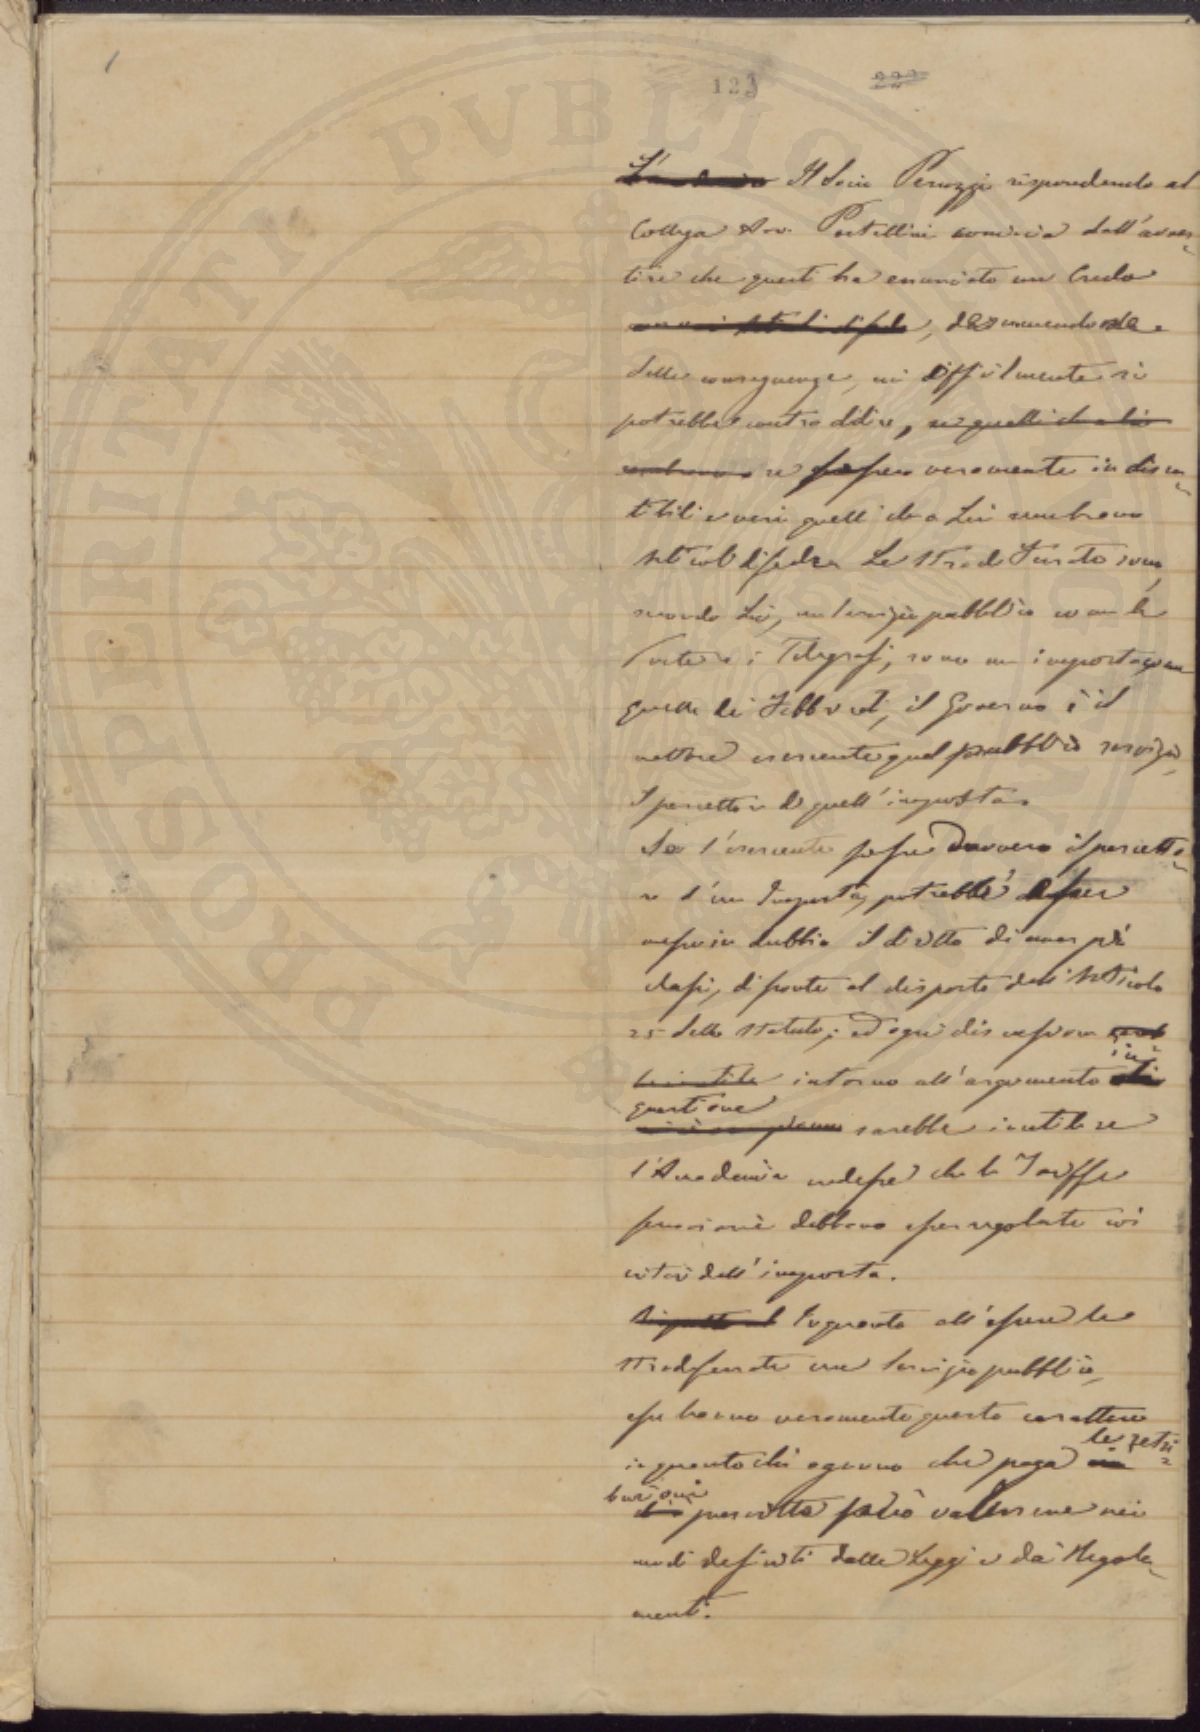 123
Il Socio Peruzzi rispondendo al
Collega Avv. Pestellini comincia dall'avver-
tire che questi ha enunciato un Credo
, desumendone
delle conseguenze, cui difficilmente si
potrebbe contraddire, se quelli che a lui
sembrano se fossero veramente indiscu-
tibili e veri quelli che a Lui sembrano
articoli di fede. Le Strade Ferrate sono,
secondo Lui, un Servizio pubblico come le
Poste e i Telegrafi, sono un imposta come
quella dei Fabbricati, il Governo è il
esercente quel pubblico servizio,
il percettore di quell'imposta.
Se l'esercente fosse davvero il percetto-
re d'un Imposta, potrebbe esser
messo in dubbio il diritto di aver più
classi, di fronte al disposto dell'Articolo
25 dello Statuto; ed ogni discussione
inutile intorno all'argomento in
questione
sarebbe inutile se
l'Accademia credesse che le Tariffe
ferroviarie debbano esser regolate coi
criteri dell'imposta.
Inquanto all'essere le
Strade ferrate un Servizio pubblico,
esse hanno veramente questo carattere
inquantochè ognuno che paga le retri-
buzioni
prescritte può valersene nei
modi definiti dalle Leggi e dai Regola-
menti.